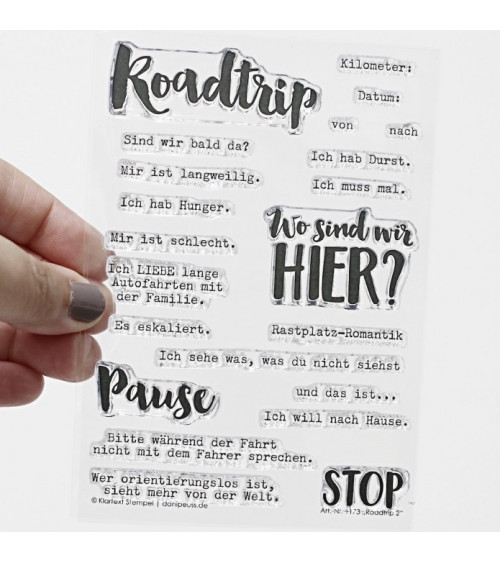 Roadtrip
Kilometer:
Datum:
von nach
Sind wir bald da?
Mir ist langweilig.
Ich hab Hunger.
Mir ist schlecht.
Ich LIEBE lange
Autofahrten mit
der Familie.
Es eskaliert.
Ich hab Durst.
Ich muss mal.
Wo sind wir
HIER?
Rastplatz-Romantik
Ich sehe was, was du nicht siehst
und das ist...
Pause
Ich will nach Hause.
Bitte während der Fahrt
nicht mit dem Fahrer sprechen.
Wer orientierungslos ist,
sieht mehr von der Welt.
STOP
© Klartext Stempel | danipeuss.de
"Roadtrip 2"